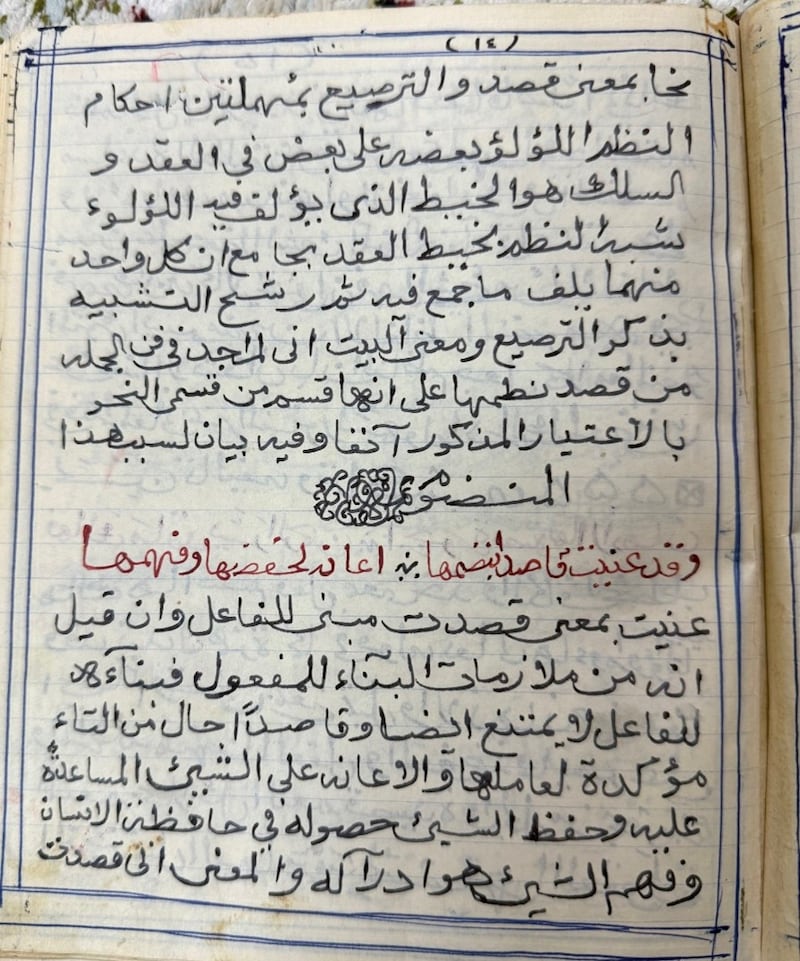 (١٤)
نحا بمعنى قصد والترصيع بمهملتين احكام
النظم اللؤلؤ بعضه على بعض في العقد و
السلك هو الخيط الذى يؤلف فيه اللؤلوء
شبه النظم بخيط العقد بجامع ان كل واحد
منهما يلف ما جمع فيه ثم رشح التشبيه
بذكر الترصيع ومعنى البيت انى لم اجد في فن الجمله
من قصد نظمها على انها قسم من قسمى النحو
بالاعتيار المذكور آنفا وفيه بيان لسبب هذا
المنضوم
وقد عنيت قاصدا بنضمها اعانه لحفضها وفهمها
عنيت بمعنى قصدت مبنى للفاعل وان قيل
انه من ملازمات البنآء للمفعول فبنآءه
للفاعل لا يمتنع ايضا وقاصدًا حال من التاء
مؤكدة لعاملها والاعانه على الشيئ المساعدة
عليه وحفظ الشيئ حصوله في حافظة الانسان
وفهم الشيئ هو ادرآكه والمعنى انى قصدت